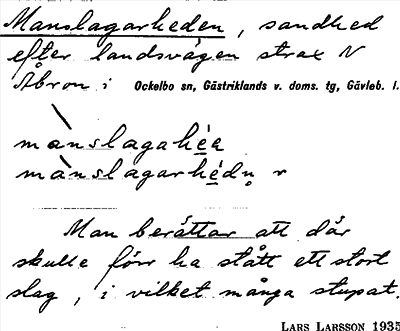 Manslagarheden, sandhed
efter landsvägen strax N
Åbron i Ockelbo sn, Gästriklands v. doms. tg, Gävleb. l.
mànslagahéa
mànslagarhédn̥ r
Man berättar att där
skulle förr ha stått ett stort
slag, i vilket många stupat.
LARS LARSSON 1935